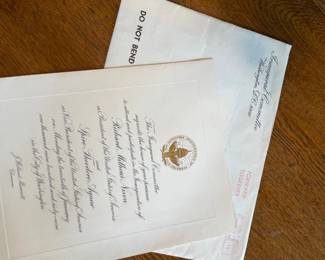 The Inaugural Committee
requests the honor of your presence
to attend and participate in the Inauguration of
Richard Milhous Nixon
as President of the United States of America
and
Spiro Theodore Agnew
as Vice President of the United States of America
on Monday the twentieth of January
one thousand nine hundred and sixty-nine
in the City of Washington
J. Willard Marriott
Chairman
DO NOT BEND
Inaugural Committee
Washington, D.C.